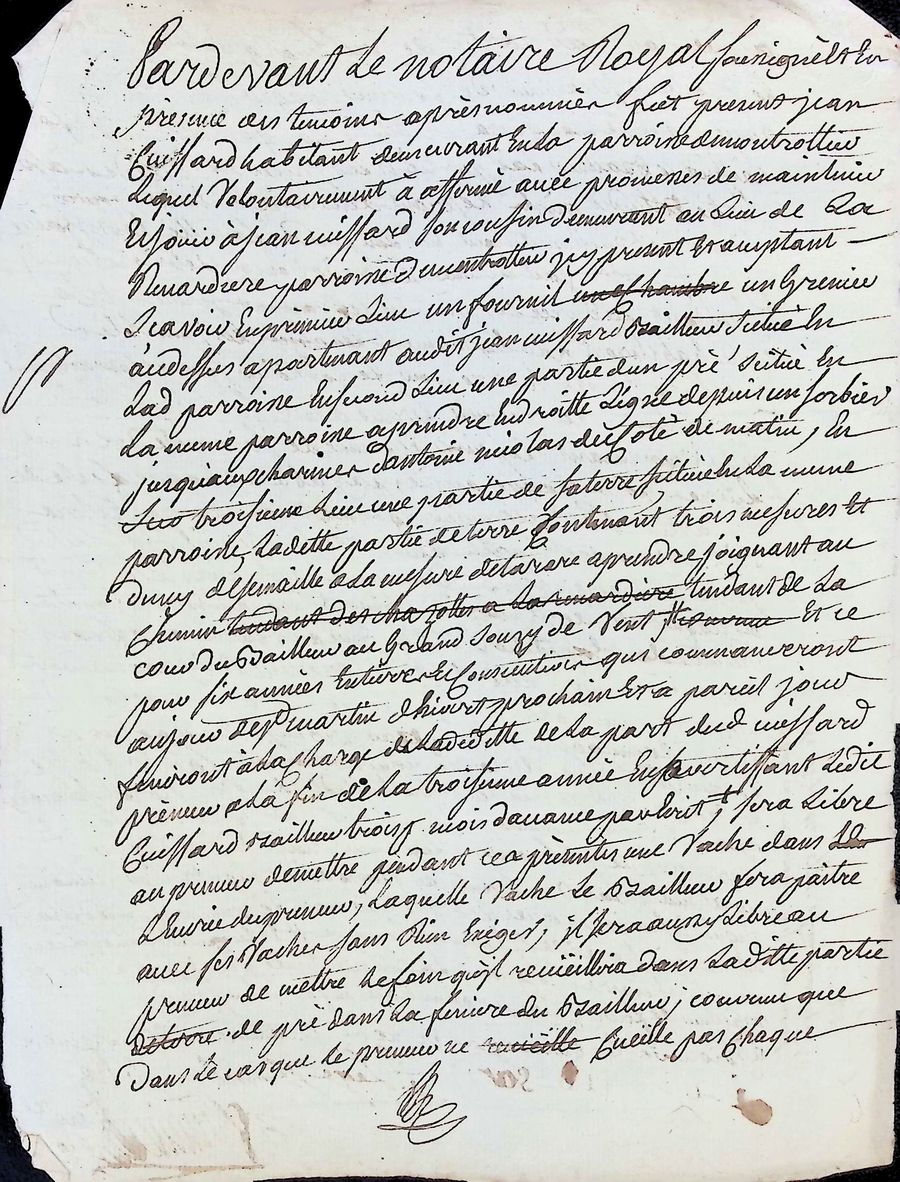 Pardevant Le notaire Royal soussigné Et En
présence des temoins aprèsnommés fut present jean
Cuissard habitant demeurant En La parroisse demontrottier
Lequel Volontairement à affermé avec promesses de maintenir
Et jouir à jean cuissard son cousin demeurant au Lieu de La
Renardiere parroisse demontrottier jcy present Et acceptant
Scavoir En premier Lieu un fournil une Chambre un Grenier
àudessus apartenant audit jean cuissard Bailleur Scitué En
Lad parroisse En second Lieu une partie d'un pré scitué En
La meme parroisse aprendre En droitte Ligne depuis un sorbier
jusqu'aux charmes d'antoine nicolas du Coté de matin, En
troisieme Lieu une partie de sa terre scituée En La meme
parroisse, Laditte partie de terre Contenant trois mesures Et
demy de semaille a La mesure de tarare aprendre joignant au
Chemin tendant des chazottes a La renardiere tendant de La
cour du Bailleur au Grand Souzy de Vent, Et ce
pour six années Entieres Et Consecutives qui commanceront
aujour de st martin d'hiver prochain Et a pareil jour
finiront à La Charge de La deditte de La part dud cuissard
preneur a La fin de La troisieme année En avertissant Ledit
Cuissard Bailleur trois mois davance par Ecrit, sera Libre
au preneur de mettre pendant ces présentes une Vache dans
L'Ecurie du preneur, Laquelle Vache Le Bailleur fera paitre
avec ses Vaches sans Rien Exiger, jl sera aussy Libre au
preneur de mettre Le foin qu'jl recüeillira dans Laditte partie
de terre de pré dans La feniere du Bailleur, convenu que
Dans Le cas que Le preneur ne recüeille Cueille pas Chaque